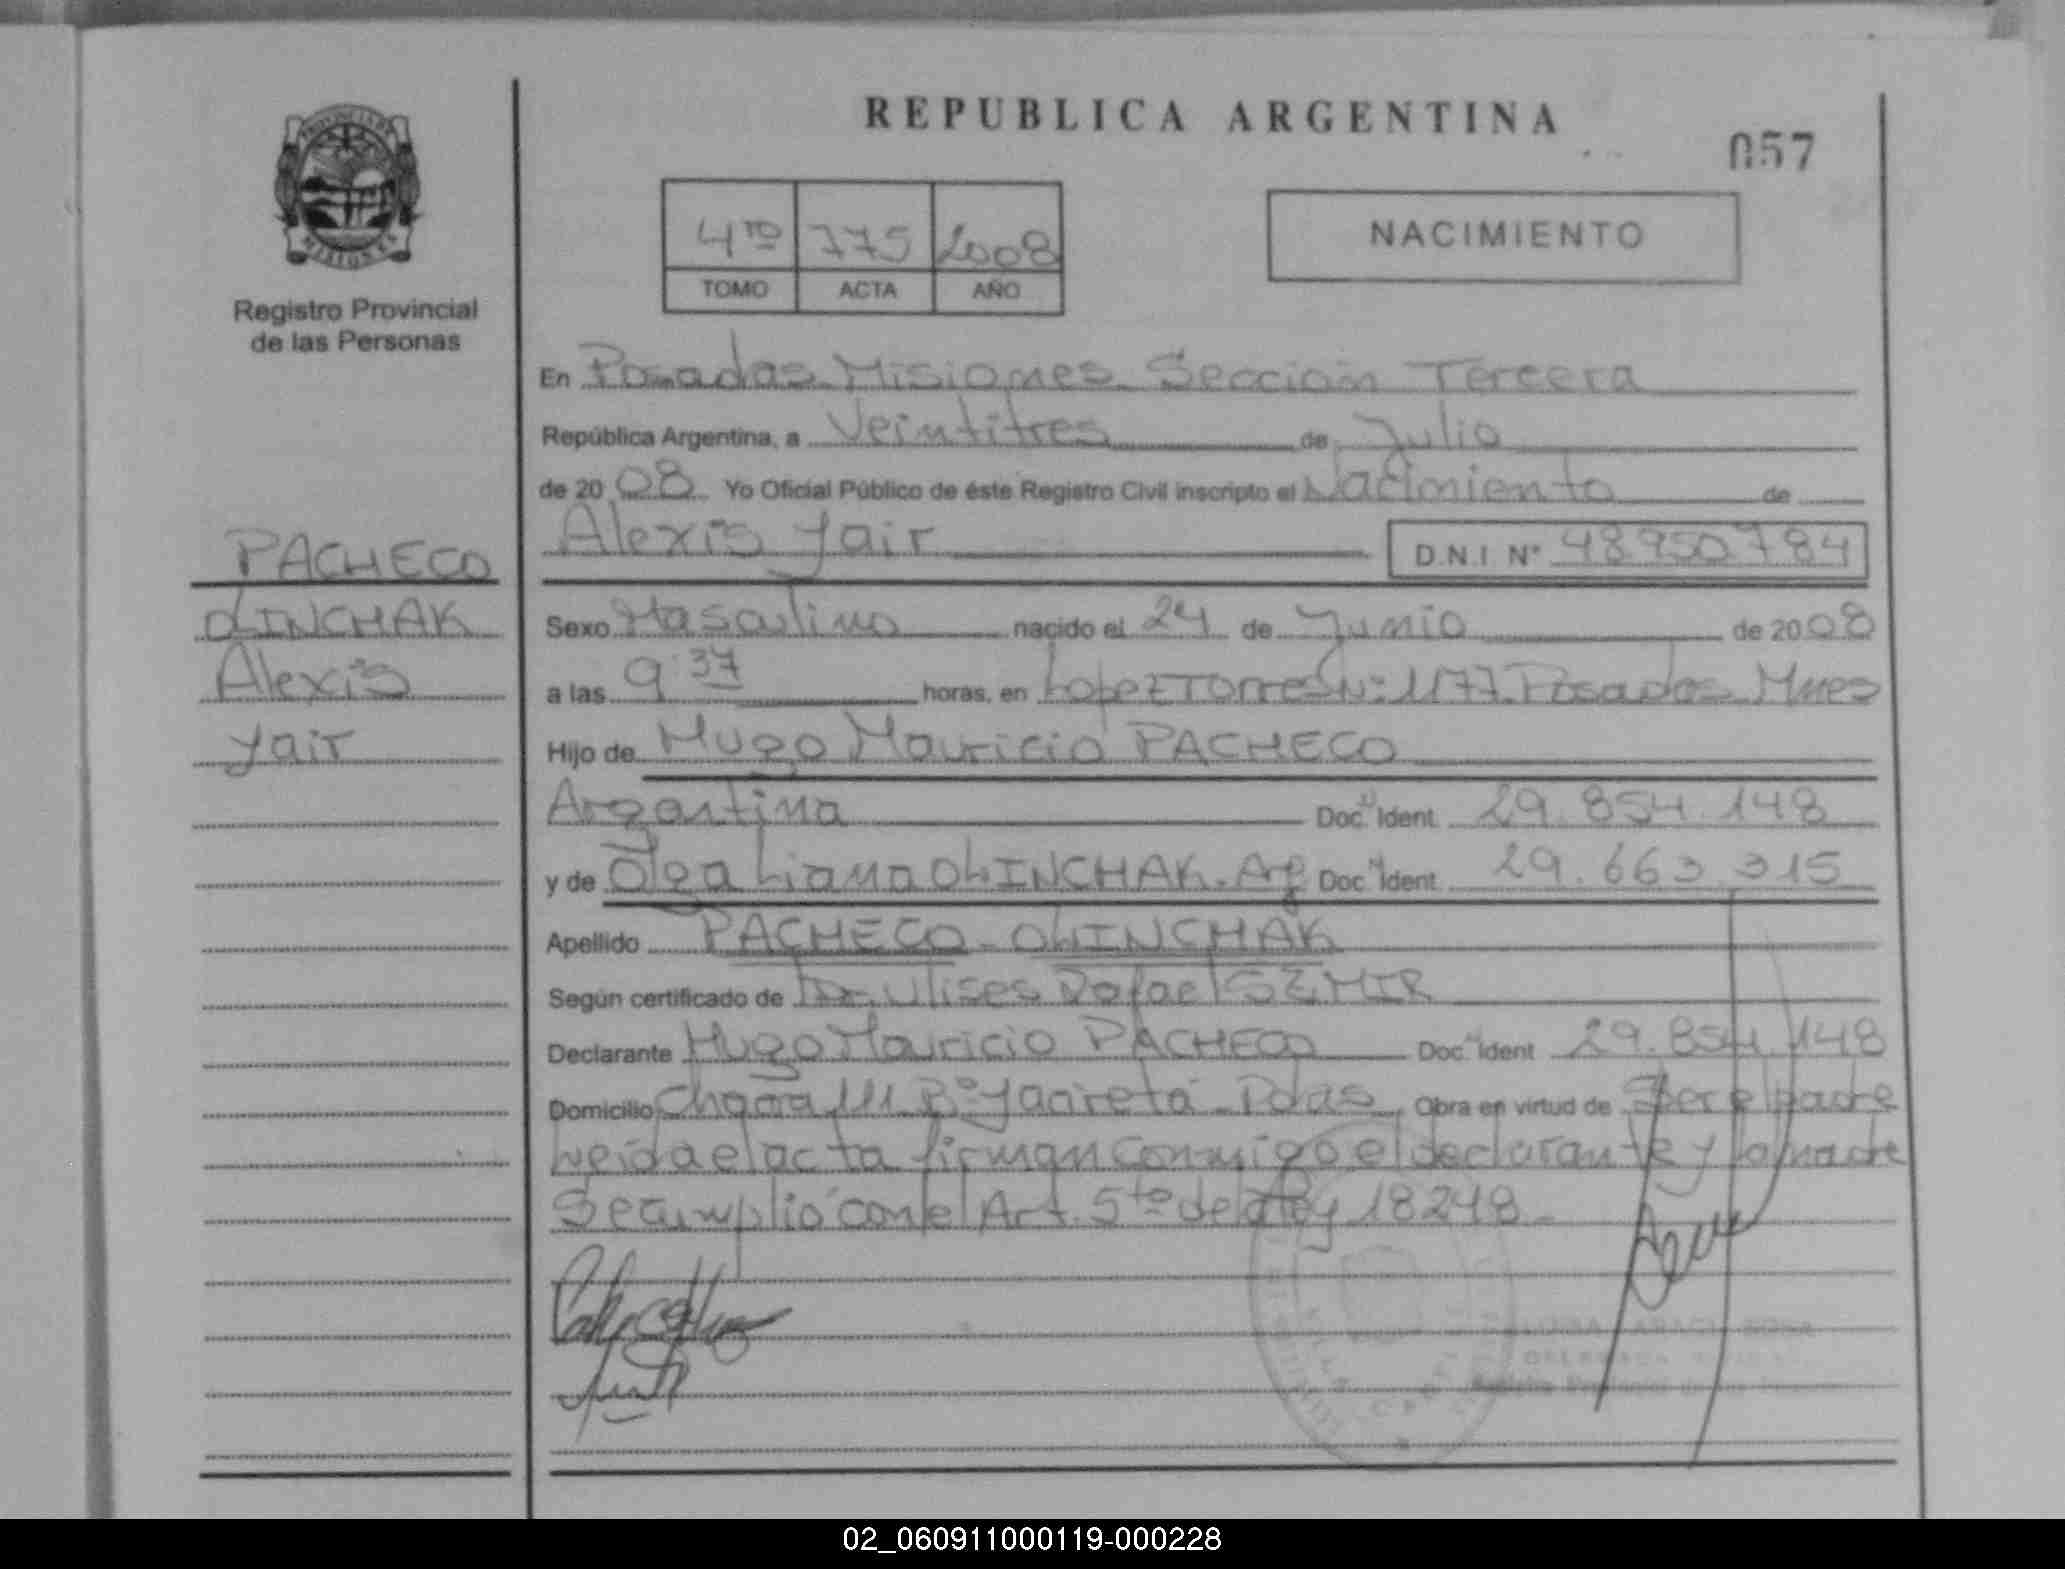 REPUBLICA ARGENTINA
057
PROVINCIA DE
MISIONES
Registro Provincial
de las Personas
4to 775 2008
TOMO ACTA AÑO
NACIMIENTO
En Posadas Misiones Sección Tercera
República Argentina, a Veintitres de Julio
de 20 08 Yo Oficial Público de éste Registro Civil inscripto el Nacimiento de
Alexis Yair D.N.I Nº 48950784
PACHECO
OLINCHAK
Alexis
Yair
Sexo Masculino nacido el 24 de Junio de 20 08
a las 9:37 horas, en Lopez Torres Nº 1177 Posadas Mnes
Hijo de Hugo Mauricio PACHECO
Argentina Doc. Ident. 29.854.148
y de Olga Liana OLINCHAK. Arg Doc. Ident. 29.663.315
Apellido PACHECO - OLINCHAK
Según certificado de Dr. Ulises Rafael SEMIR
Declarante Hugo Mauricio PACHECO Doc. Ident 29.854.148
Domicilio Chacra 111 Bº Yacireta - Pdas Obra en virtud de Ser el padre
Leida el acta firman conmigo el declarante y la madre
Se cumplió con el Art. 5to de la ley 18248 -
02_060911000119-000228